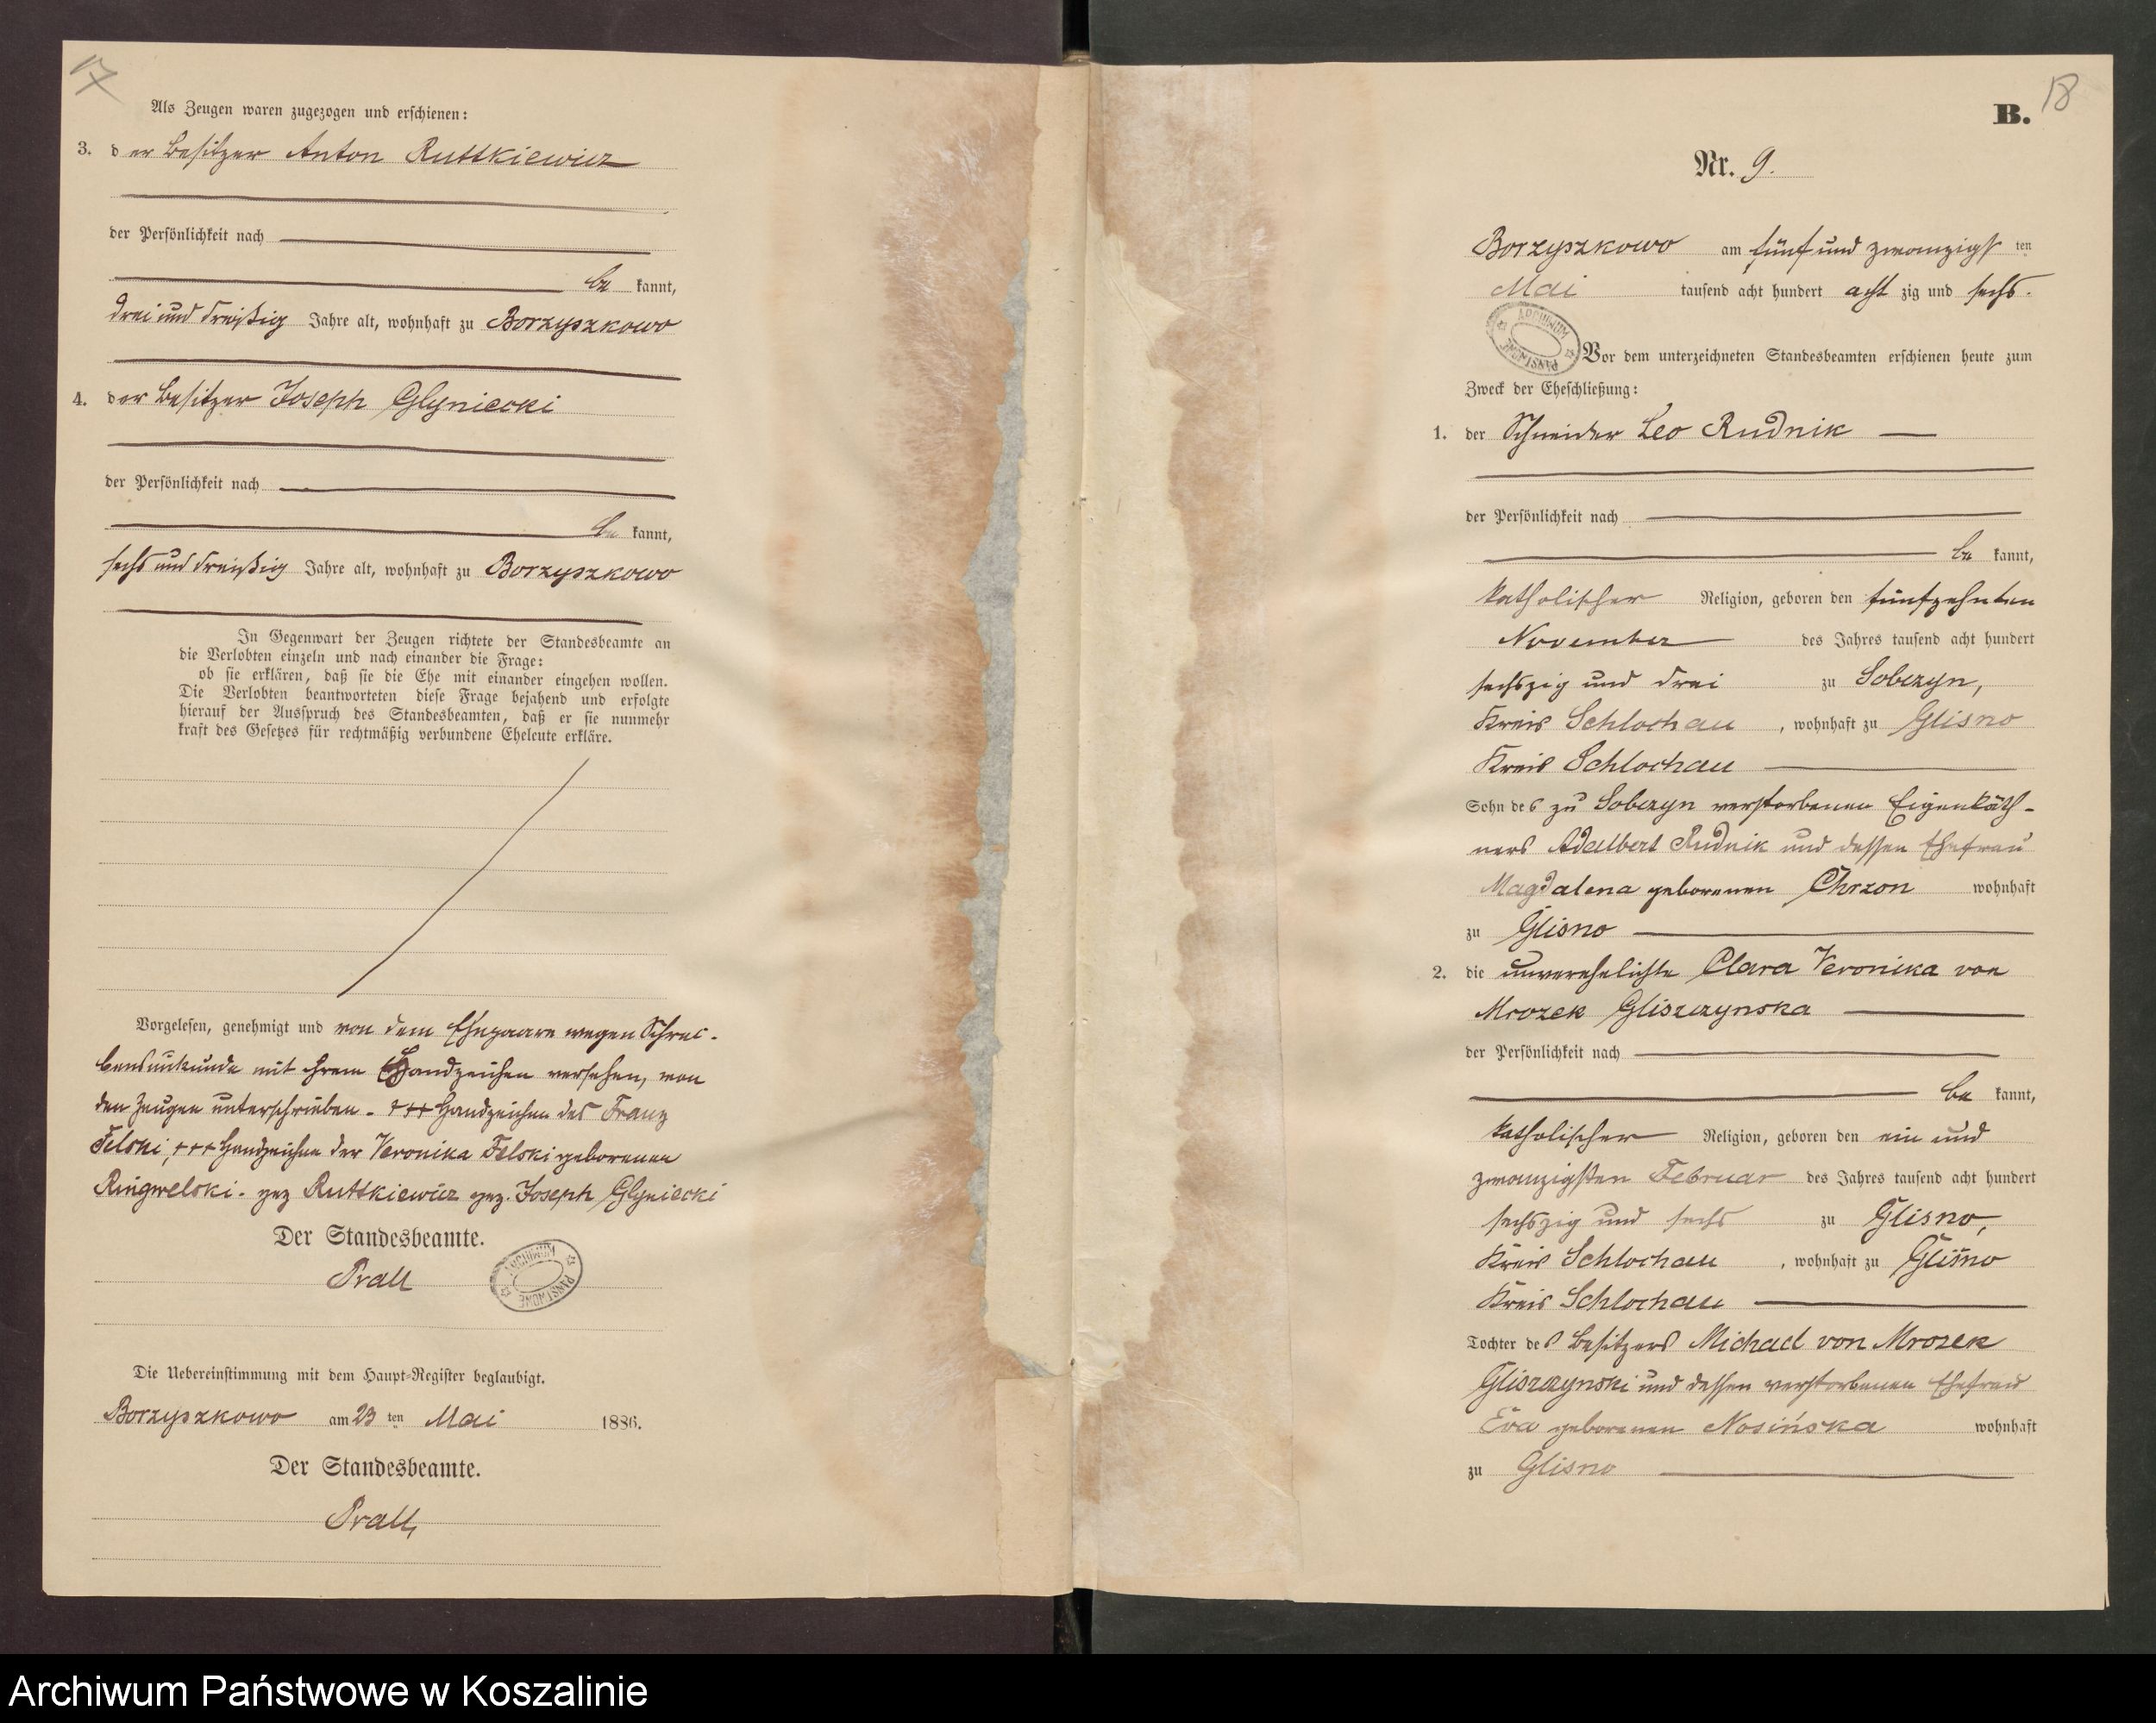 17
Als Zeugen waren zugezogen und erschienen:
3. der Besitzer Anton Ruttkiewicz
der Persönlichkeit nach
be kannt,
drei und dreißig Jahre alt, wohnhaft zu Borzyszkowo
4. der Besitzer Joseph Glyniecki
der Persönlichkeit nach
be kannt,
sechs und dreißig Jahre alt, wohnhaft zu Borzyszkowo
In Gegenwart der Zeugen richtete der Standesbeamte an
die Verlobten einzeln und nach einander die Frage:
ob sie erklären, daß sie die Ehe mit einander eingehen wollen.
Die Verlobten beantworteten diese Frage bejahend und erfolgte
hierauf der Ausspruch des Standesbeamten, daß er sie nunmehr
kraft des Gesetzes für rechtmäßig verbundene Eheleute erkläre.
Vorgelesen, genehmigt und von dem Ehepaare wegen Schrei-
bensunkunde mit ihrem Handzeichen versehen, von
den Zeugen unterschrieben. +++ Handzeichen des Franz
Felski, +++ Handzeichen der Veronika Felski geborenen
Ringwelski. gez Ruttkiewicz gez. Joseph Glyniecki
Der Standesbeamte.
Prall
ARCHIWUM PAŃSTWOWE
Die Uebereinstimmung mit dem Haupt-Register beglaubigt.
Borzyszkowo am 23 ten Mai 1886.
Der Standesbeamte.
Prall,
18
B.
Nr. 9.
Borzyszkowo am fünf und zwanzigst ten
Mai tausend acht hundert acht zig und sechs.
ARCHIWUM PAŃSTWOWE
Vor dem unterzeichneten Standesbeamten erschienen heute zum
Zweck der Eheschließung:
1. der Schneider Leo Rudnik
der Persönlichkeit nach
be kannt,
katholischer Religion, geboren den fünfzehnten
November des Jahres tausend acht hundert
sechszig und drei zu Sobczyn,
Kreis Schlochau, wohnhaft zu Glisno
Kreis Schlochau
Sohn des zu Sobczyn verstorbenen Eigenkäth-
ners Adalbert Rudnik und dessen Ehefrau
Magdalena geborenen Chrzon wohnhaft
zu Glisno
2. die unverehelichte Clara Veronika von
Mrozek Gliszczynska
der Persönlichkeit nach
be kannt,
katholischer Religion, geboren den ein und
zwanzigsten Februar des Jahres tausend acht hundert
sechszig und sechs zu Glisno,
Kreis Schlochau, wohnhaft zu Glisno
Kreis Schlochau
Tochter des Besitzers Michael von Mrozek
Gliszczynski und dessen verstorbenen Ehefrau
Eva geborenen Nosińska wohnhaft
zu Glisno
Archiwum Państwowe w Koszalinie